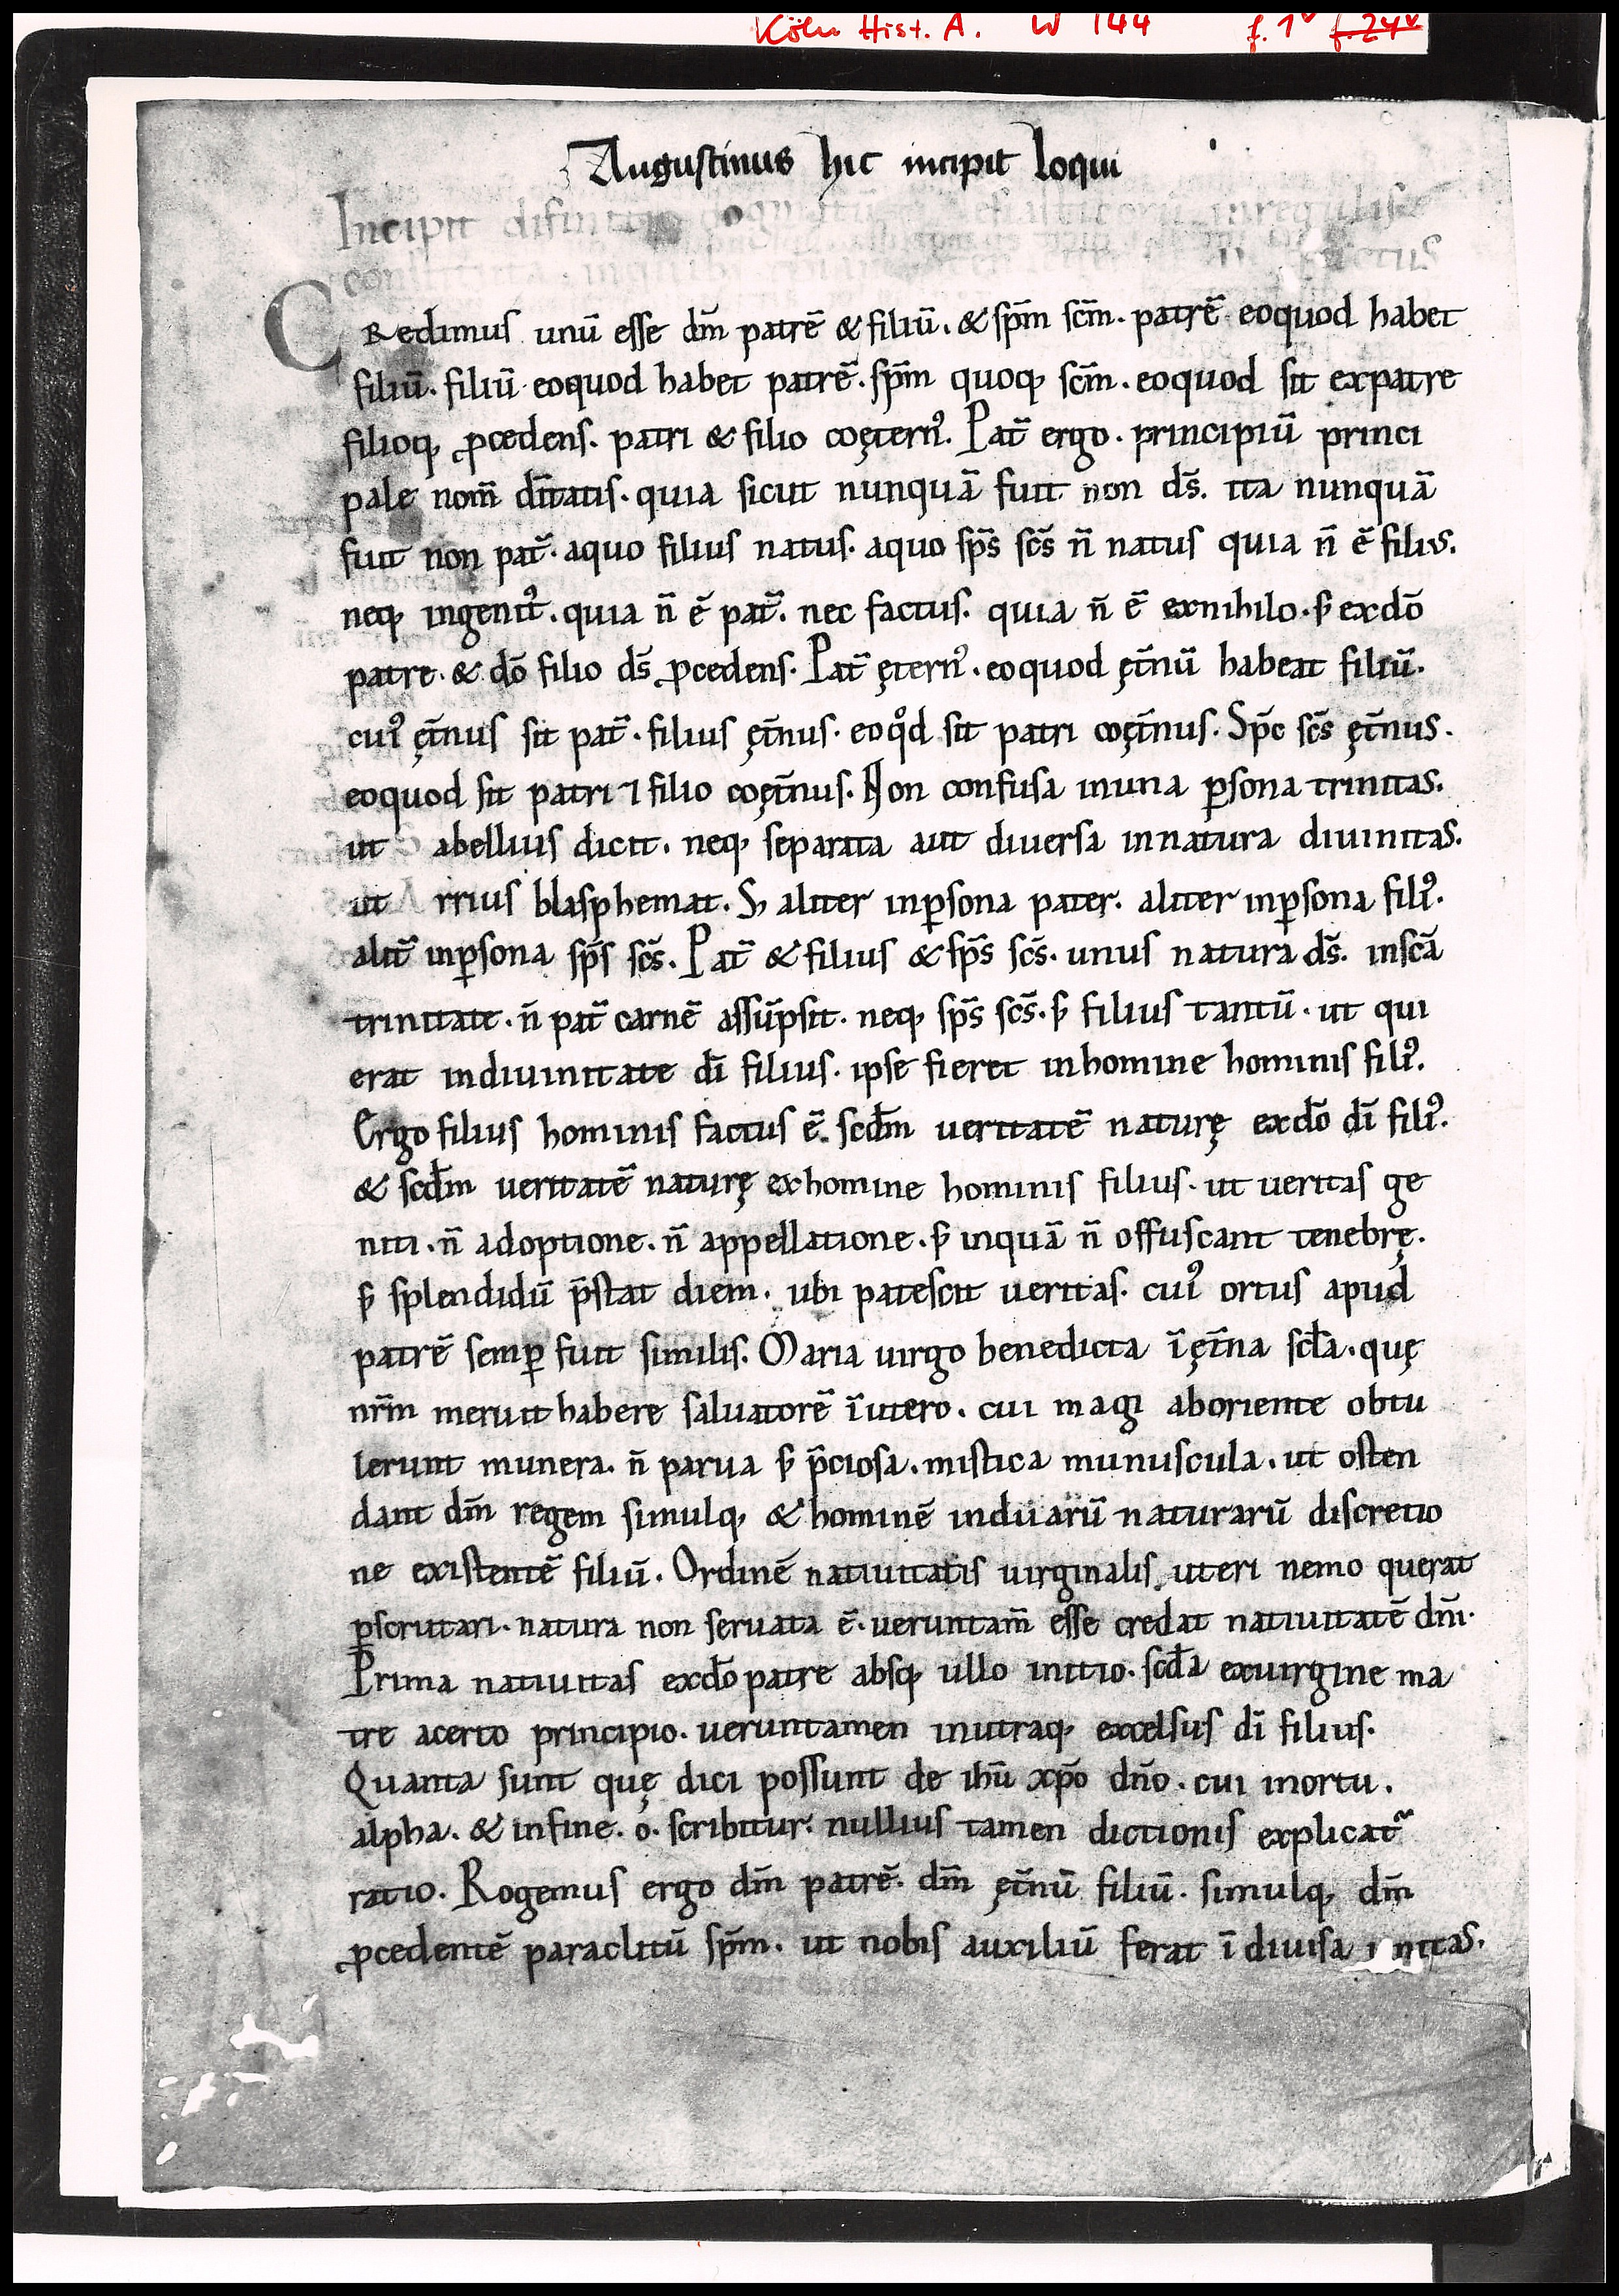 Köln Hist. A. W 144 f. 1v f. 24v
Augustinus hic incipit loqui
Incipit
CRedimus unū esse dm̄ patrē & filiū. & sp̄m sc̄m. patrē eoquod habet
filiū. filiū eoquod habet patrē. sp̄m quoq; sc̄m. eoquod sit expatre
filioq; ꝓcedens. patri & filio coęternꝰ. Pat̄ ergo. principiū princi
pale nom̄ dīitatis. quia sicut nunquā fuit non ds̄. ita nunquā
fuit non pat̄. aquo filius natus. aquo sp̄s sc̄s n̄ natus quia n̄ ē filius.
neq; ingenitꝰ. quia n̄ ē pat̄. nec factus. quia n̄ ē exnihilo. s; exdō
patre. & dō filio ds̄ ꝓcedens. Pat̄ ęternꝰ. eoquod ęt̄nū habeat filiū.
cuiꝰ ęt̄nus sit pat̄. filius ęt̄nus. eoqͦd sit patri coęt̄nus. Sp̄c sc̄s ęt̄nus.
eoquod sit patri ⁊ filio coęt̄nus. Non confusa inuna ꝑsona trinitas.
ut Sabellius dicit. neq; separata aut diuersa innatura diuinitas.
ut Arrius blasphemat. S; aliter inꝑsona pater. aliter inꝑsona filiꝰ.
alit̄ inꝑsona sp̄s sc̄s. Pat̄ & filius & sp̄s sc̄s. unus natura ds̄. inscā
trinitate. n̄ pat̄ carnē assūpsit. neq; sp̄s sc̄s. s; filius tantū. ut qui
erat indiuinitate dī filius. ipse fieret inhomine hominis filiꝰ.
Ergo filius hominis factus ē. scd̄m ueritatē naturę exdō dī filiꝰ.
& scd̄m ueritatē naturę exhomine hominis filius. ut ueritas ge
niti. n̄ adoptione. n̄ appellatione. s; inquā n̄ offuscant tenebrę.
s; splendidū p̄stat diem. ubi patescit ueritas. cuiꝰ ortus apud
patrē semꝑ fuit similis. Maria uirgo benedicta ī ęt̄na scl̄a. quę
nr̄m meruit habere saluatorē ī utero. cui magi aboriente obtu
lerunt munera. n̄ parua s; p̄ciosa. mistica munuscula. ut osten
dant dm̄ regem simulq; & hominē induarū naturarū discretio
ne existentē filiū. Ordinē natiuitatis uirginalis uteri nemo querat
ꝑscrutari. natura non seruata ē. ueruntam̄ esse credat natiuitatē dn̄i.
Prima natiuitas exdō patre absq; ullo initio. scd̄a exuirgine ma
tre acerto principio. ueruntamen inutraq; excelsus dī filius.
Quanta sunt quę dici possunt de ihū xp̄o dn̄o. cui inortu.
alpha. & infine. o. scribitur. nullius tamen dictionis explicat̄
ratio. Rogemus ergo dm̄ patrē. dm̄ ęt̄nū filiū. simulq; dm̄
ꝓcedentē paraclitū sp̄m. ut nobis auxiliū ferat ī diuisa